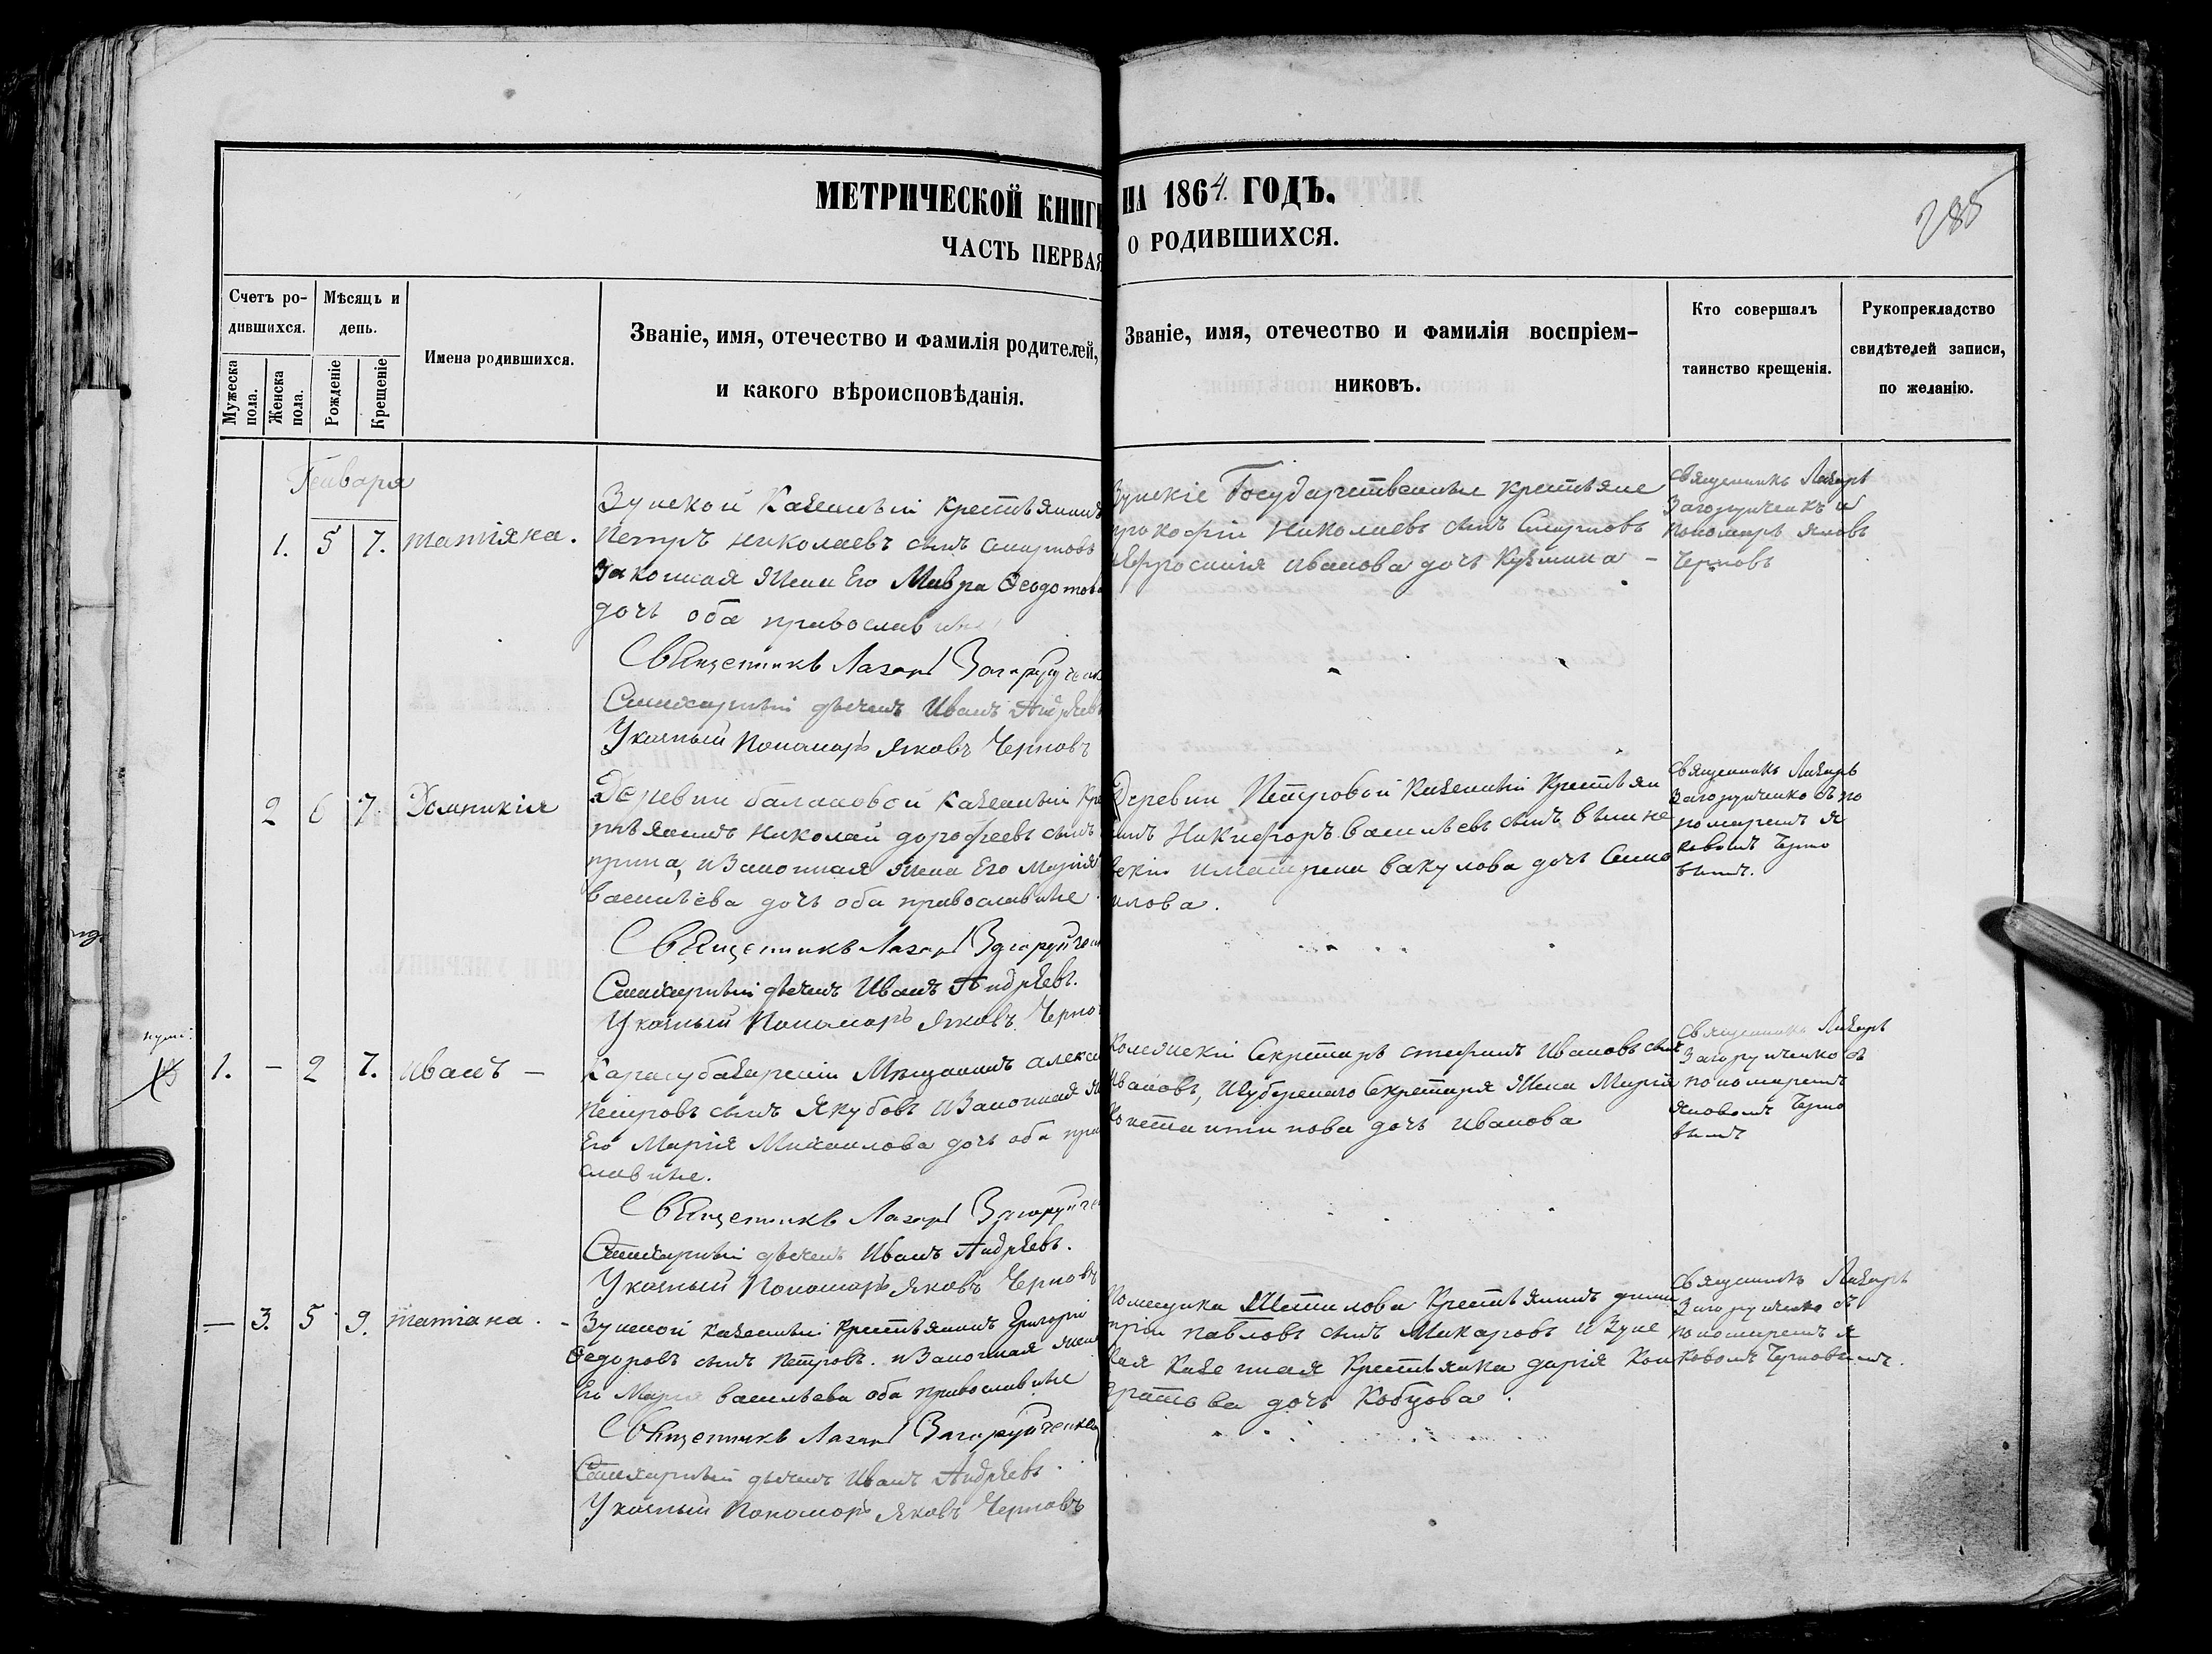 МЕТРИЧЕСКОЙ КНИГИ НА 1864. ГОДЪ.
ЧАСТЬ ПЕРВАЯ О РОДИВШИХСЯ.
285
Счетъ ро-
дившихся.
Мужеска
пола.
Женска
пола.
Мѣсяцъ и
день.
Рожденіе
Крещеніе
Имена родившихся.
Званіе, имя, отечество и фамилія родителей,
и какого вѣроисповѣданія.
Званіе, имя, отечество и фамилія воспріем-
никовъ.
Кто совершалъ
таинство крещенія.
Рукоприкладство
свидѣтелей записи,
по желанію.
Генваря
1. 5 7. татіяна.
Зуйской Казенный Крестьянинъ
Петръ Николаевъ сынъ Смирновъ
Законная Жена Его Мавра Ѳеодотова
дочь оба православные
Священникъ Лазарь
Стихарный дьячекъ Иванъ Андрѣевъ
Указный Пономарь Яковъ Черновъ
Зуйскіе Государственные крестьяне
Прокофій Николаевъ сынъ Смирновъ
Ефросинія Иванова дочь Кузмина -
Священникъ Лазарь
Пономарь Яковъ
Черновъ
2 6 7. Домникія
Деревни балановой Казенный Кре
стьянинъ Николай дорофеевъ сынъ
и Законная Жена Его Марія
васильева дочь оба православные
Священникъ Лазарь
Стихарный дьячекъ Иванъ Андрѣевъ.
Указный Пономарь Яковъ Черно
Деревни Петровой Казенный Крестьян
инъ Никифоръ василевъ сынъ
вакулова дочь
илова.
Священникъ Лазарь
Загорулченко съ по
номаремъ Я
ковомъ Черно
вымъ.
1. - 2 7. Иванъ -
Карасубазарскій Мѣщанинъ алекс
Петровъ сынъ Якубовъ и Законная
Его Марія Михаилова дочь оба пра
славные.
Священникъ Лазарь
Стихарный дьячекъ Иванъ Андрѣевъ.
Указный Пономарь Яковъ Черновъ
Секретарь стефанъ Ивановъ сынъ
Ивановъ, и губернскаго Секретаря Жена Марія
Константинова дочь Иванова
Священникъ Лазарь
Загорулченко съ
пономаремъ
Яковомъ Черно
вымъ
— 3. 5 9. татіана. -
Зуйской казенный Крестьянинъ Григорій
Ѳедоровъ сынъ Петровъ. и Законная жена
Его Марія васильева оба православные
Священникъ Лазарь
Стихарный дьячекъ Иванъ Андрѣевъ.
Указный Пономарь Яковъ Черновъ
Помещика Шатилова Крестьянинъ дими
трій павловъ сынъ Макаровъ и Зуйс
кая Казенная Крестьянка дарія Кон
дратова дочь Кобцова.
Священникъ Лазарь
Загорулченко съ
пономаремъ Я
ковомъ Черновымъ.